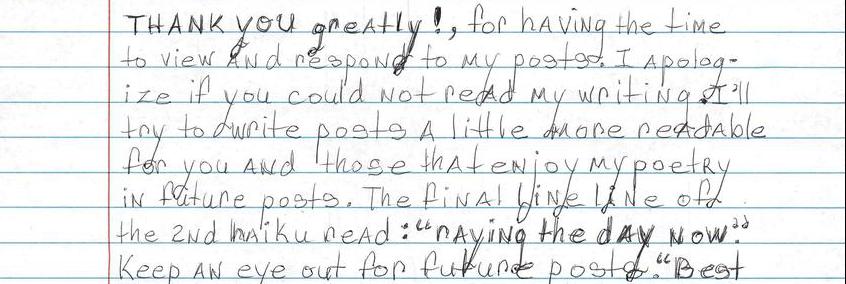 THANK you greatly!, for hAving the time
to view And respond to My posts. I Apolog-
ize if you could Not reAd My writiNg. I'll
try to write posts A little more reAdAble
for you AND those thAt eNjoy My poetry
iN future posts. The fiNAl liNe of
the 2Nd hAiku reAd: "rAyiNg the dAy Now."
Keep AN eye out for future posts. "Best